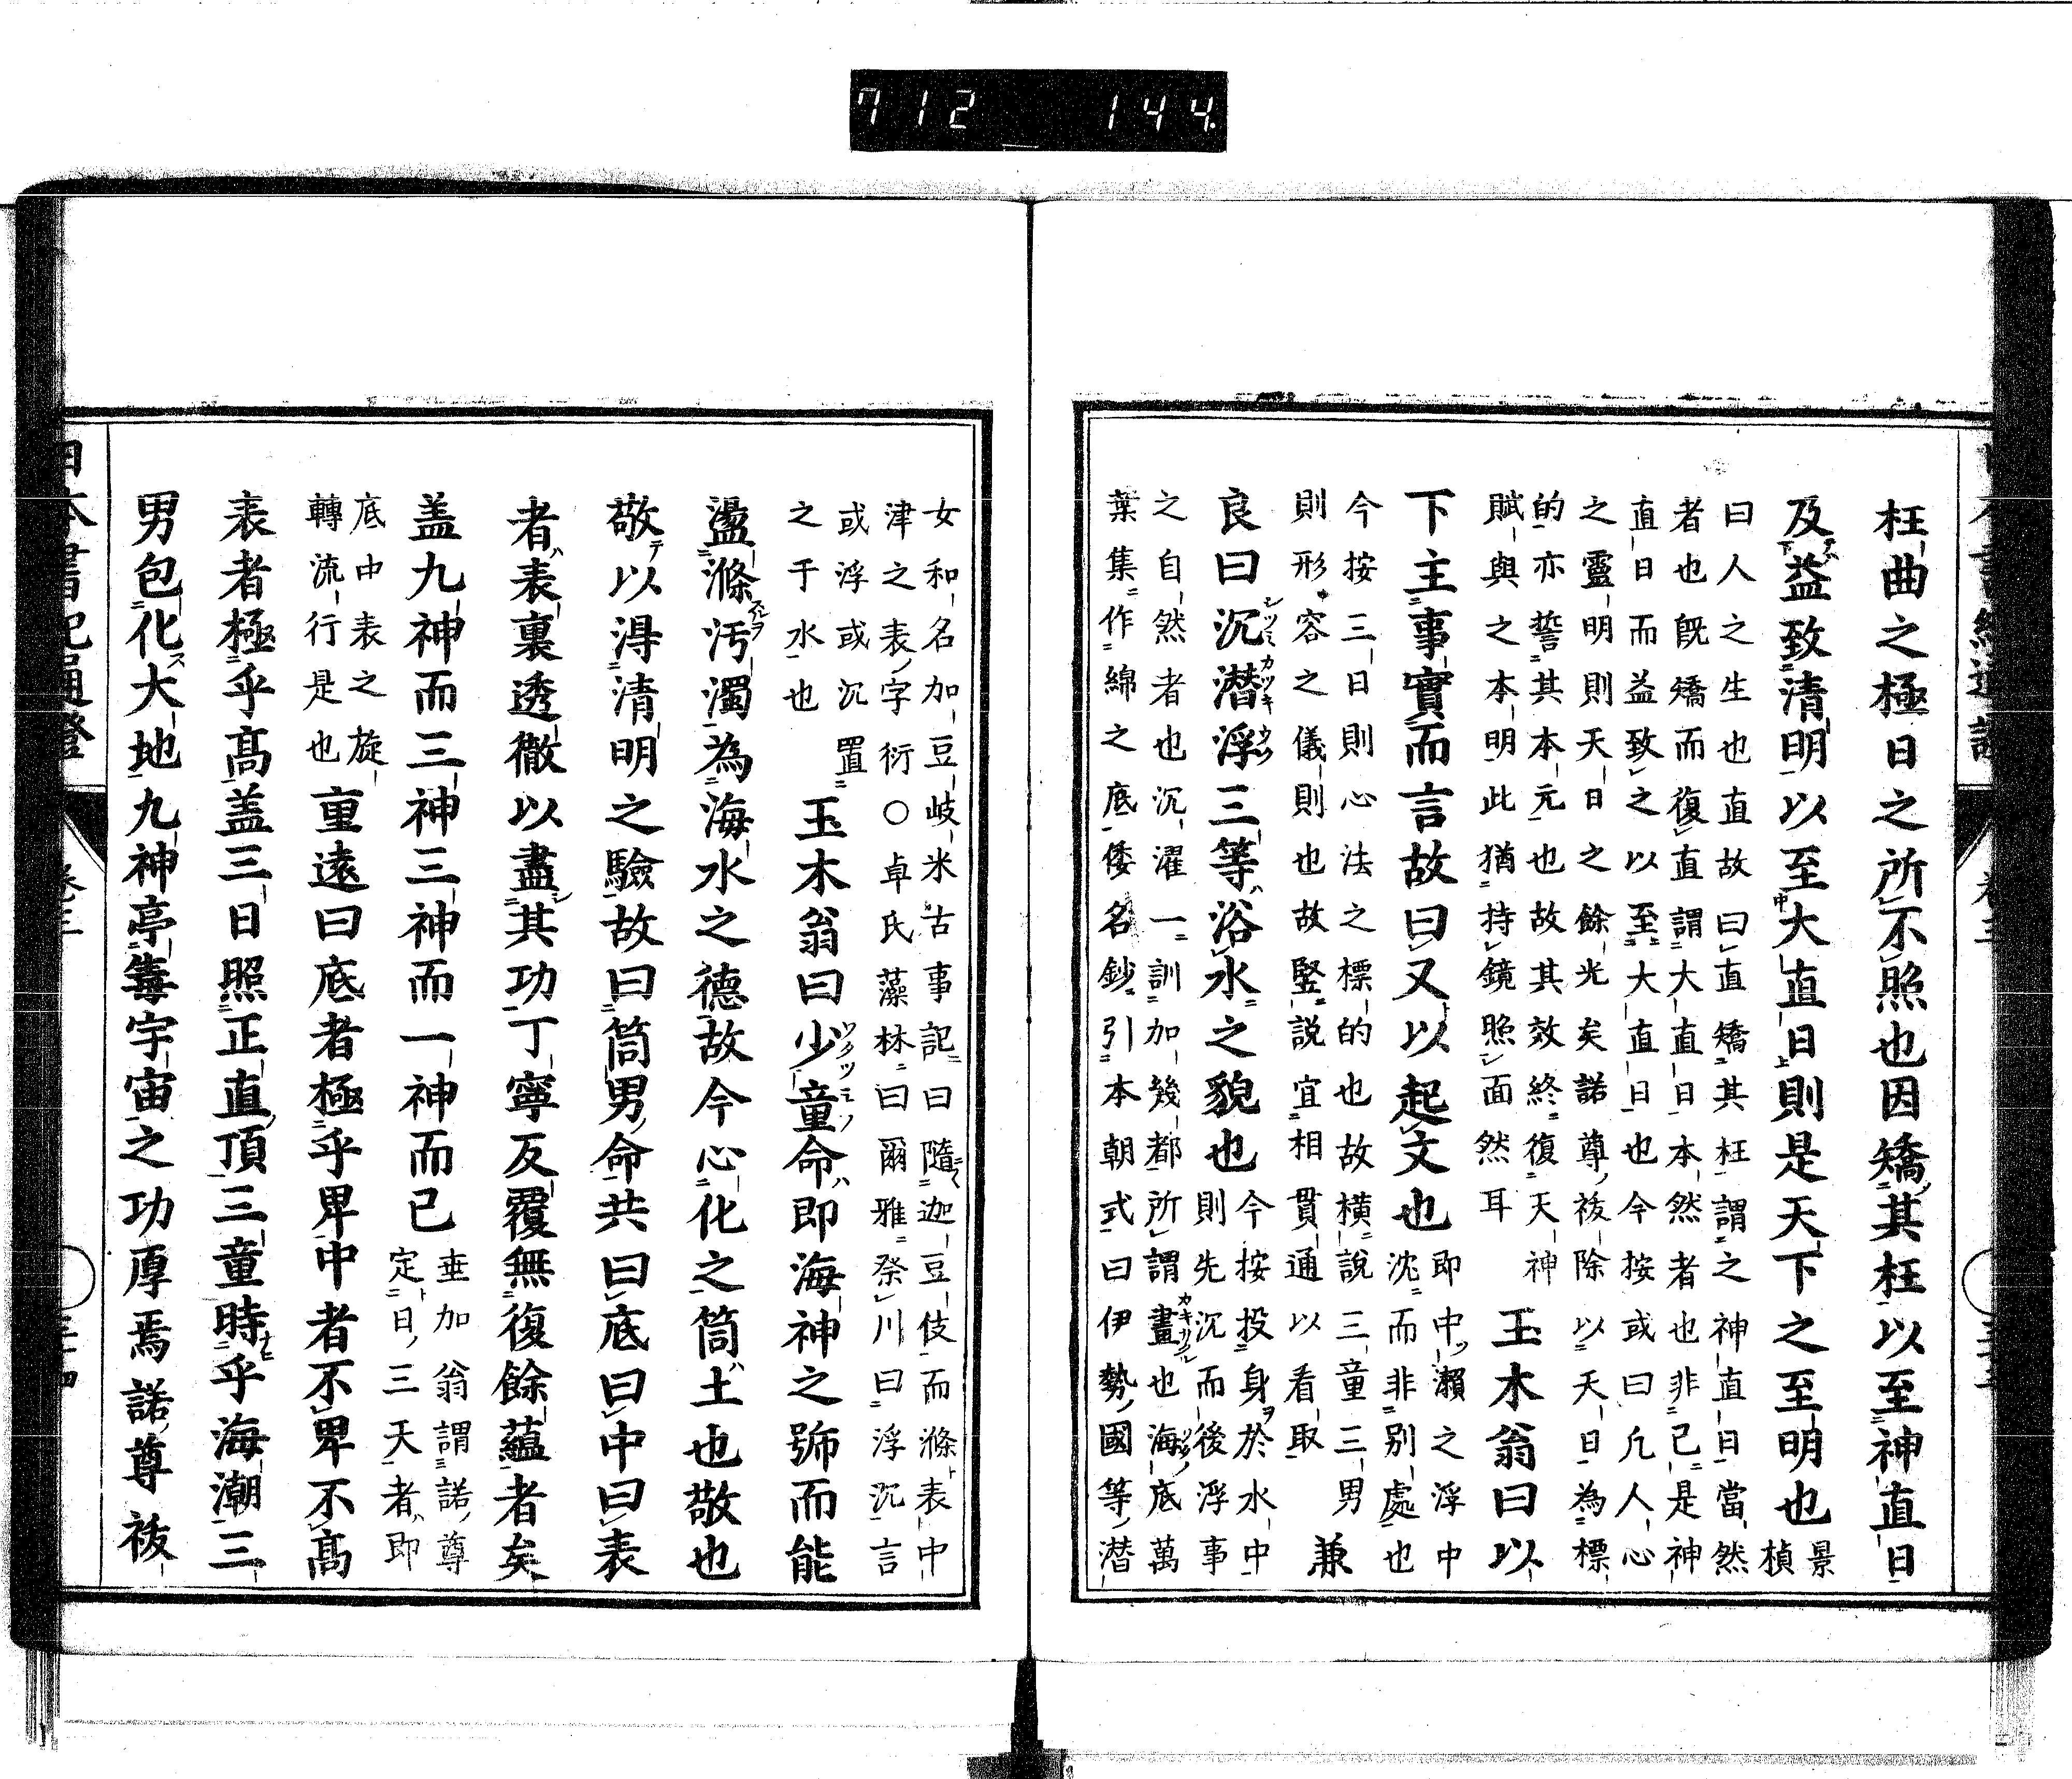 712 144
枉曲之極日之所不照也因矯其枉以至神直日
及益致清明以至大直日則是天下之至明也
景
楨
曰人之生也直故曰直矯其枉謂之神直日當然
者也既矯而復直謂大直日本然者也非己是神
直日而益致之以至大直日也今按或曰凡人心
之靈明則天日之餘光矣諾尊祓除以天日為標
的亦誓其本元也故其效終復天神
賦與之本明此猶持鏡照面然耳
玉木翁曰以
下主事實而言故曰又以起文也
即中瀬之浮中
沈而非別處也
今按三日則心法之標的也故横説三童三男
則形容之儀則也故竪説宜相貫通以看取
兼
良曰沉潛浮三等浴水之貌也
今按投身於水中
則先沉而後浮事
之自然者也沉濯一訓加幾都所謂畫也海底萬
葉集作綿之底倭名鈔引本朝式曰伊勢國等潛
女和名加豆岐米古事記曰隨迦豆伎而滌表中
津之表字衍○卓氏藻林曰爾雅祭川曰浮沉言
或浮或沉置
之于水也
玉木翁曰少童命即海神之號而能
盪滌汚濁為海水之德故今心化之筒土也敬也
敬以得清明之驗故曰筒男命共曰底曰中曰表
者表裏透徹以盡其功丁寧反覆無復餘蘊者矣
盖九神而三神三神而一神而已
垂加翁謂諾尊
定日三天者即
底中表之旋
轉流行是也
重遠曰底者極乎卑中者不卑不髙
表者極乎髙盖三日照正直頂三童時乎海潮三
男包化大地九神亭毒宇宙之功厚焉諾尊祓
日本書紀通證 卷三 三十四